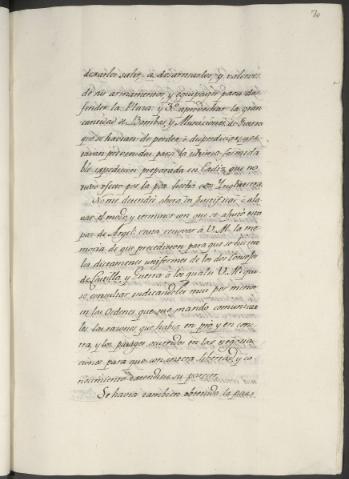 dexarles salir, a desarmarles, y valerse
de sus armamentos, y equipages para de-
fender la Plaza y 3º aprovechar la gran
cantidad de Bombas, y Municiones de Guerra
que se havian de perder, ò desperdiciar, y es-
tavan prevenidas para la ultima formida
ble expedicion preparada en Cadiz, que no
tuvo efecto por la paz hecha con Inglaterra.
No me detendrè ahora en justificar, ò ala-
var el modo, y terminos con que se ajustò esta
paz de Argel: vasta renovar à V. M. la me-
moria de que precedieron para que se hiciese
los dictamenes uniformes de los dos Consejos
de Castilla, y Guerra à los quales V. M. qui-
so consultar indicandoles muy por menor
en las Ordenes que me mandò comunicar
les las razones que havia en pro, y en con-
tra, y los pasages ocurridos en las negocia
ciones para que con entera libertad, y co-
nocimiento diesen su parecer.
Se havia tambien obtenido la paz